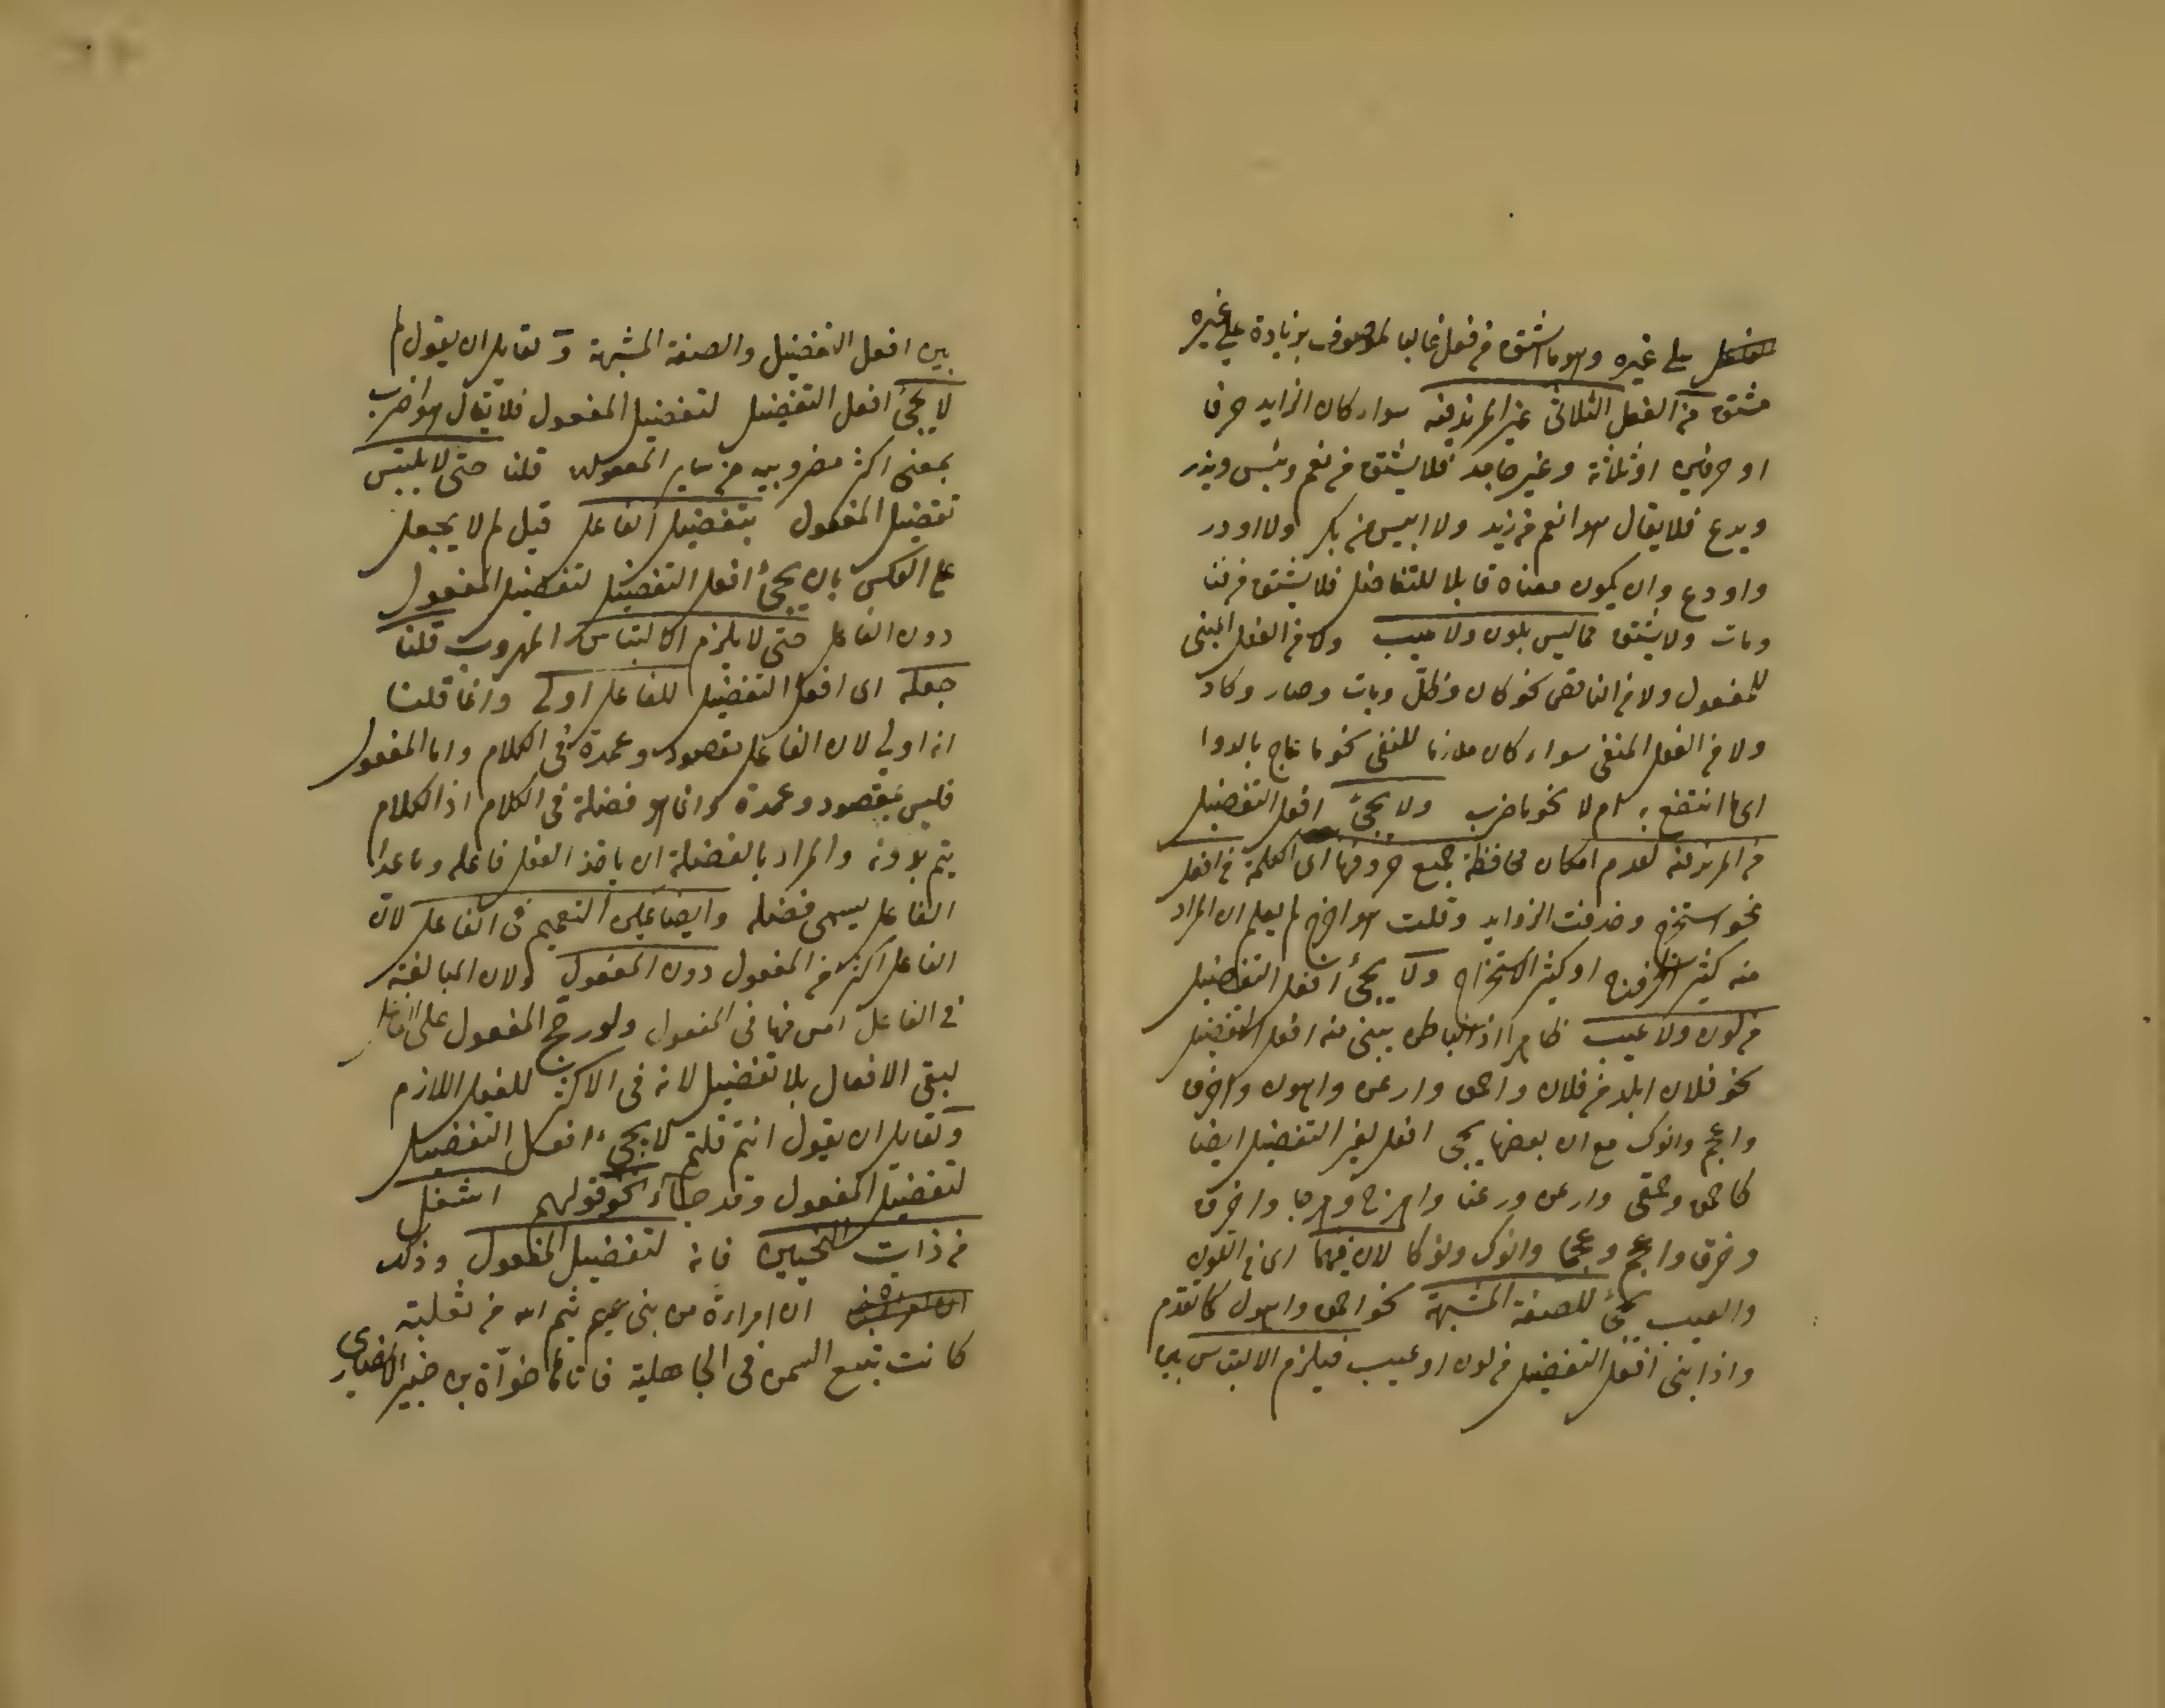 على غيره وهو ما اشتق من فعل غالبا لموصوف بزيادة على غيره
مشتق من الفعل الثلاثى غير المزيد فيه سواء كان الزايد حرفا
او حرفين او ثلاثة وغير جامد فلا يشتق من نعم وبئس ويذر
ويدع فلا يقال هو انعم من زيد ولا ابيس من بكر ولا اوذر
واودع وان يكون معناه قابلا للتفاضل فلا يشتق من فنا
ومات ولا يشتق مما ليس بلون ولا عيب ولا من الفعل المبنى
للمفعول ولا من الناقص نحو كان وظل وبات وصار وكاد
ولا من الفعل المنفى سواء كان ملازما للنفى نحو ما عاج بالدوا
اى ما انتفع به ام لا نحو ما ضرب ولا يجئ افعل التفضيل
من المزيد فيه لعدم امكان محافظة جميع حروفها اى الكلمة فى افعل
نحو استخرج وحذفت الزوايد وقلت هو اخرج لم يعلم ان المراد
منه كثير الخروج او كثير الاستخراج ولا يجئ افعل التفضيل
من لون ولا عيب ظاهرا اذ الباطن يبنى منه افعل التفضيل
نحو فلان ابلد من فلان واحمق وارعن واهون واخرق
واعجم وانوك مع ان بعضها يجئ افعل لغير التفضيل ايضا
كاحمق وحمقى وارعن ورعنا واهوج وهوجا واخرق
وخرقا واعجم وعجما وانوك ونوكا لان فيهما اى فى اللون
والعيب يجئ للصفة المشبهة نحو احمق واسود كما تقدم
واذا بنى افعل التفضيل من لون او عيب فيلزم الالتباس بين
بين افعل التفضيل والصفة المشبهة ولقايل ان يقول لم
لا يجئ افعل التفضيل لتفضيل المفعول فلا يقال هو اضرب
بمعنى اكثر مضروبيه من ساير المفعولين قلنا حتى لا يلتبس
تفضيل المفعول بتفضيل الفاعل قيل لم لا يجعل
على العكس بان يجئ افعل التفضيل لتفضيل المفعول
دون الفاعل حتى لا يلزم الالتباس المهروب قلنا
جعله اى افعل التفضيل للفاعل اولى وانما قلنا
انه اولى لان الفاعل مقصود وعمدة فى الكلام واما المفعول
فليس بمقصود وعمدة وانما هو فضلة فى الكلام اذ الكلام
يتم بدونه والمراد بالفضلة ان ياخذ الفعل فاعله وما عدا
الفاعل يسمى فضلة وايضا يمكن التعميم فى الفاعل لان
الفاعل اكثر من المفعول دون المفعول ولان المبالغة
فى الفاعل امس منها فى المفعول ولو رجح المفعول على الفاعل
لبقى الافعال بلا تفضيل لانه فى الاكثر للفعل اللازم
ولقايل ان يقول انتم قلتم لا يجئ افعل التفضيل
لتفضيل المفعول وقد جاء نحو قولهم اشغل
من ذات النحيين فانه لتفضيل المفعول وذلك
ان امراءة من بنى تميم ثيم الله من ثعلبة
كانت تبيع السمن فى الجاهلية فاتاها خوآة بن جبير الانصارى